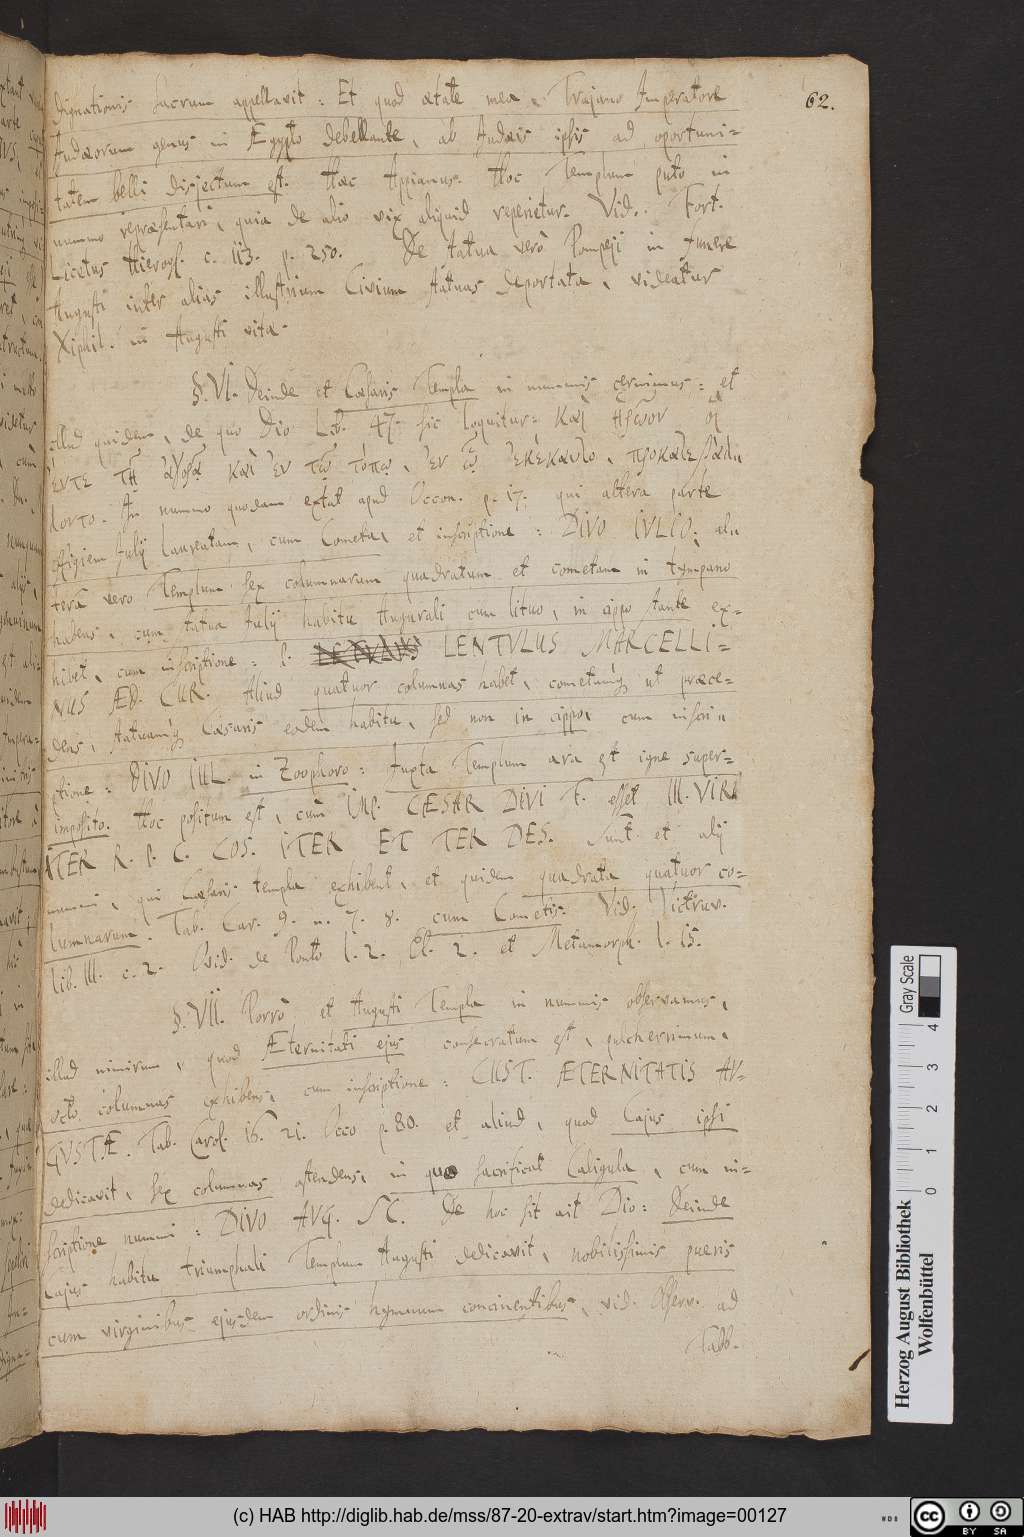 62.
dignationis sacrum appellavit: Et quod ætate mea, Trajano Imperatore
Judæorum genus in Ægypto debellante, ab Judæis ipsis ad oportuni=
tatem belli disjectum est. Hæc Appianus. Hoc Templum puto in
nummo repræsentari, quia de alio vix aliquid reperietur. Vid. Fort.
Licetus Hierogl. c. 113. p. 250. De tatua verò Pompeji in funere
Augusti inter alias illustrium Civium statuas deportata, videatur
Xiphil. in Augusti vita.
§. VI. Deinde et Cæsaris Templa in nummis cernimus: et
illud quidem, de quo Dio Lib. 47. sic loquitur: καὶ ἡρῶον οἱ
ἔντε τῇ ἀγορᾷ καὶ ἐν τῷ τόπῳ, ἐν ᾧ ἐκέκαυτο, προκατεβάλ=
λοντο. In nummo quodam extat apud Occon. p. 17. qui altera parte
effigiem Julij laureatam, cum Cometa, et inscriptione: DIVO IVLIO; al=
terâ vero Templum sex columnarum quadratum et cometam in tympano
habens, cum statua Julij habitu Augurali cum lituo, in cippo stante ex=
hibet, cum inscriptione: L. LENTVLUS MARCELLI=
NUS ÆD. CUR. Aliud quatuor columnas habet, cometamq ut præce=
dens, statuamq Cæsaris eodem habitu, sed non in cippo, cum inscri=
ptione: DIVO IUL. in Zoophoro: Juxta Templum ara est igne super=
imposito. Hoc positum est, cùm IMP. CÆSAR DIVI F. esset III. VIR
ITER R. P. C. COS. ITER ET TER DES. Sunt et alij
nummi, qui Cæsaris templa exhibent, et quidem quadrata quatuor co=
lumnarum. Tab. Car. 9. n. 7. 8. cum Cometis. Vid. Victruv.
lib. III. c. 2. Ovid. de Ponto l. 2. El. 2. et Metamorph. l. 15.
§. VII. Porrò et Augusti Templa in nummis observamus,
illud nimirum, quod Æternitati ejus consecratum est, pulcherrimum,
octo columnas exhibens, cum inscriptione: CUST. ÆTERNITATIS AV=
GVSTÆ. Tab. Carol. 16. 21. Occo p. 80. et aliud, quod Cajus ipsi
dedicavit, sex columnas ostendens, in quo sacrificat Caligula, cum in=
scriptione nummi: DIVO AVG. SC. De hoc sit ait Dio: Deinde
Cajus habitu triumphali Templum Augusti dedicavit, nobilissimis pueris
cum virginibus ejusdem ordinis hymnum concinentibus, vid. Observ. ad
Tabb.
Herzog August Bibliothek
Wolfenbüttel
0 1 2 3 4
Gray Scale
(c) HAB http://diglib.hab.de/mss/87-20-extrav/start.htm?image=00127
CC BY SA